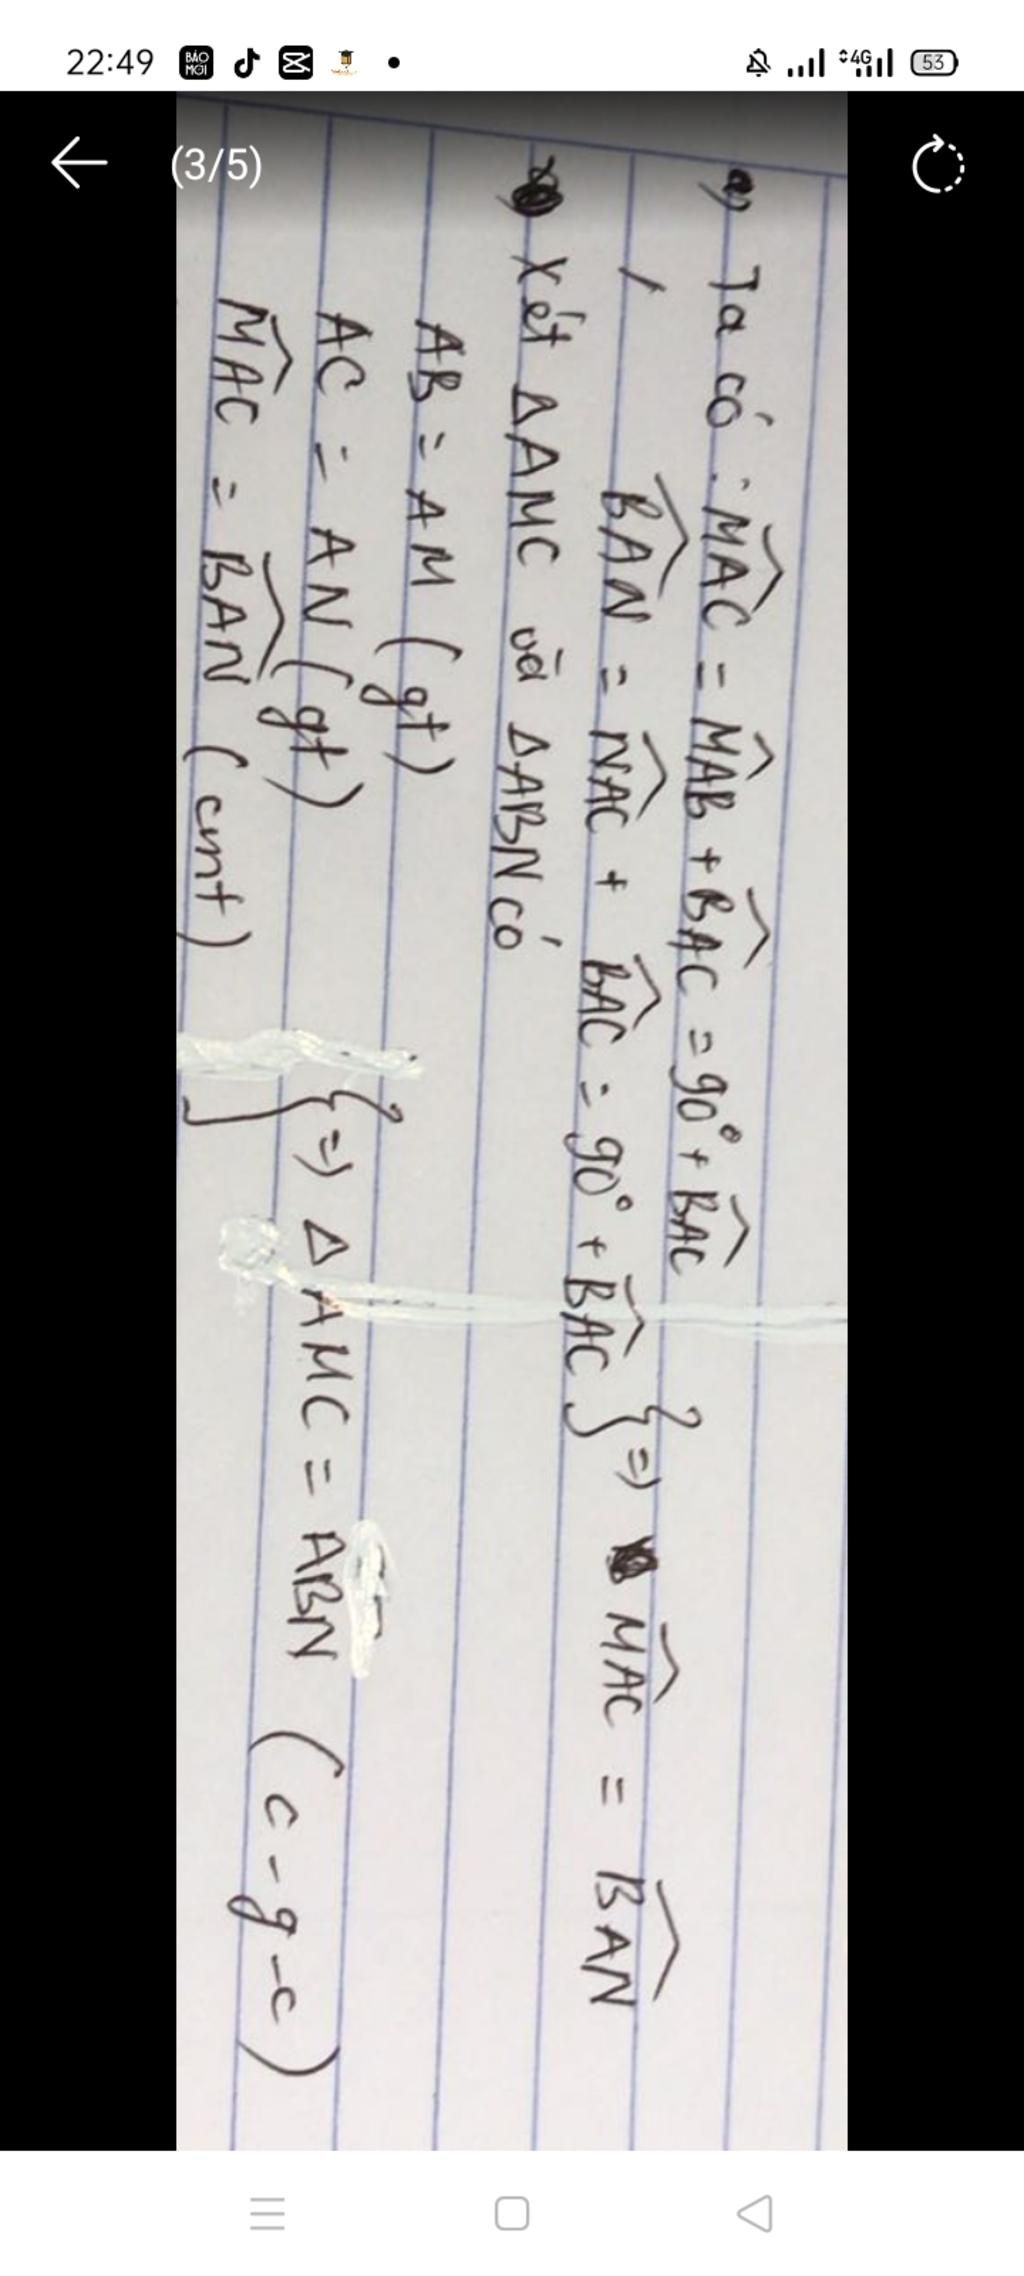 22:49
BÁO MỚI
4G
53
(3/5)
a) Ta có : MAC = MAB + BAC = 90° + BAC
BAN = NAC + BAC = 90° + BAC } => MAC = BAN
Xét ΔAMC và ΔABN có
AB = AM (gt)
AC = AN (gt)
MAC = BAN (cmt)
} => Δ AMC = ABN (c-g-c)